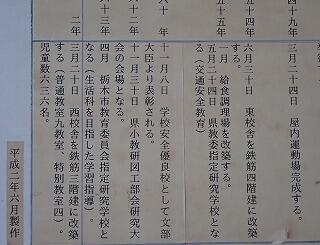 四十九年 三月二十四日 屋内運動場完成する。
五十四年 六月三十日 東校舎を鉄筋四階建に改築
する。
五十五年 一月 給食調理場を改築する。
五月二十四日 県教委指定研究学校とな
る（交通安全教育）
六十年 十一月八日 学校安全優良校として文部
大臣より表彰される。
十一月三十日 県小教研図工部会研究大
会の会場となる。
六十三年 四月 栃木市教育委員会指定研究学校と
なる（生活科を目指した学習指導）。
二年 三月二十日 西校舎を鉄筋三階建に改築
する（普通教室九教室、特別教室四）。
児童数六三六名。
平成二年六月製作